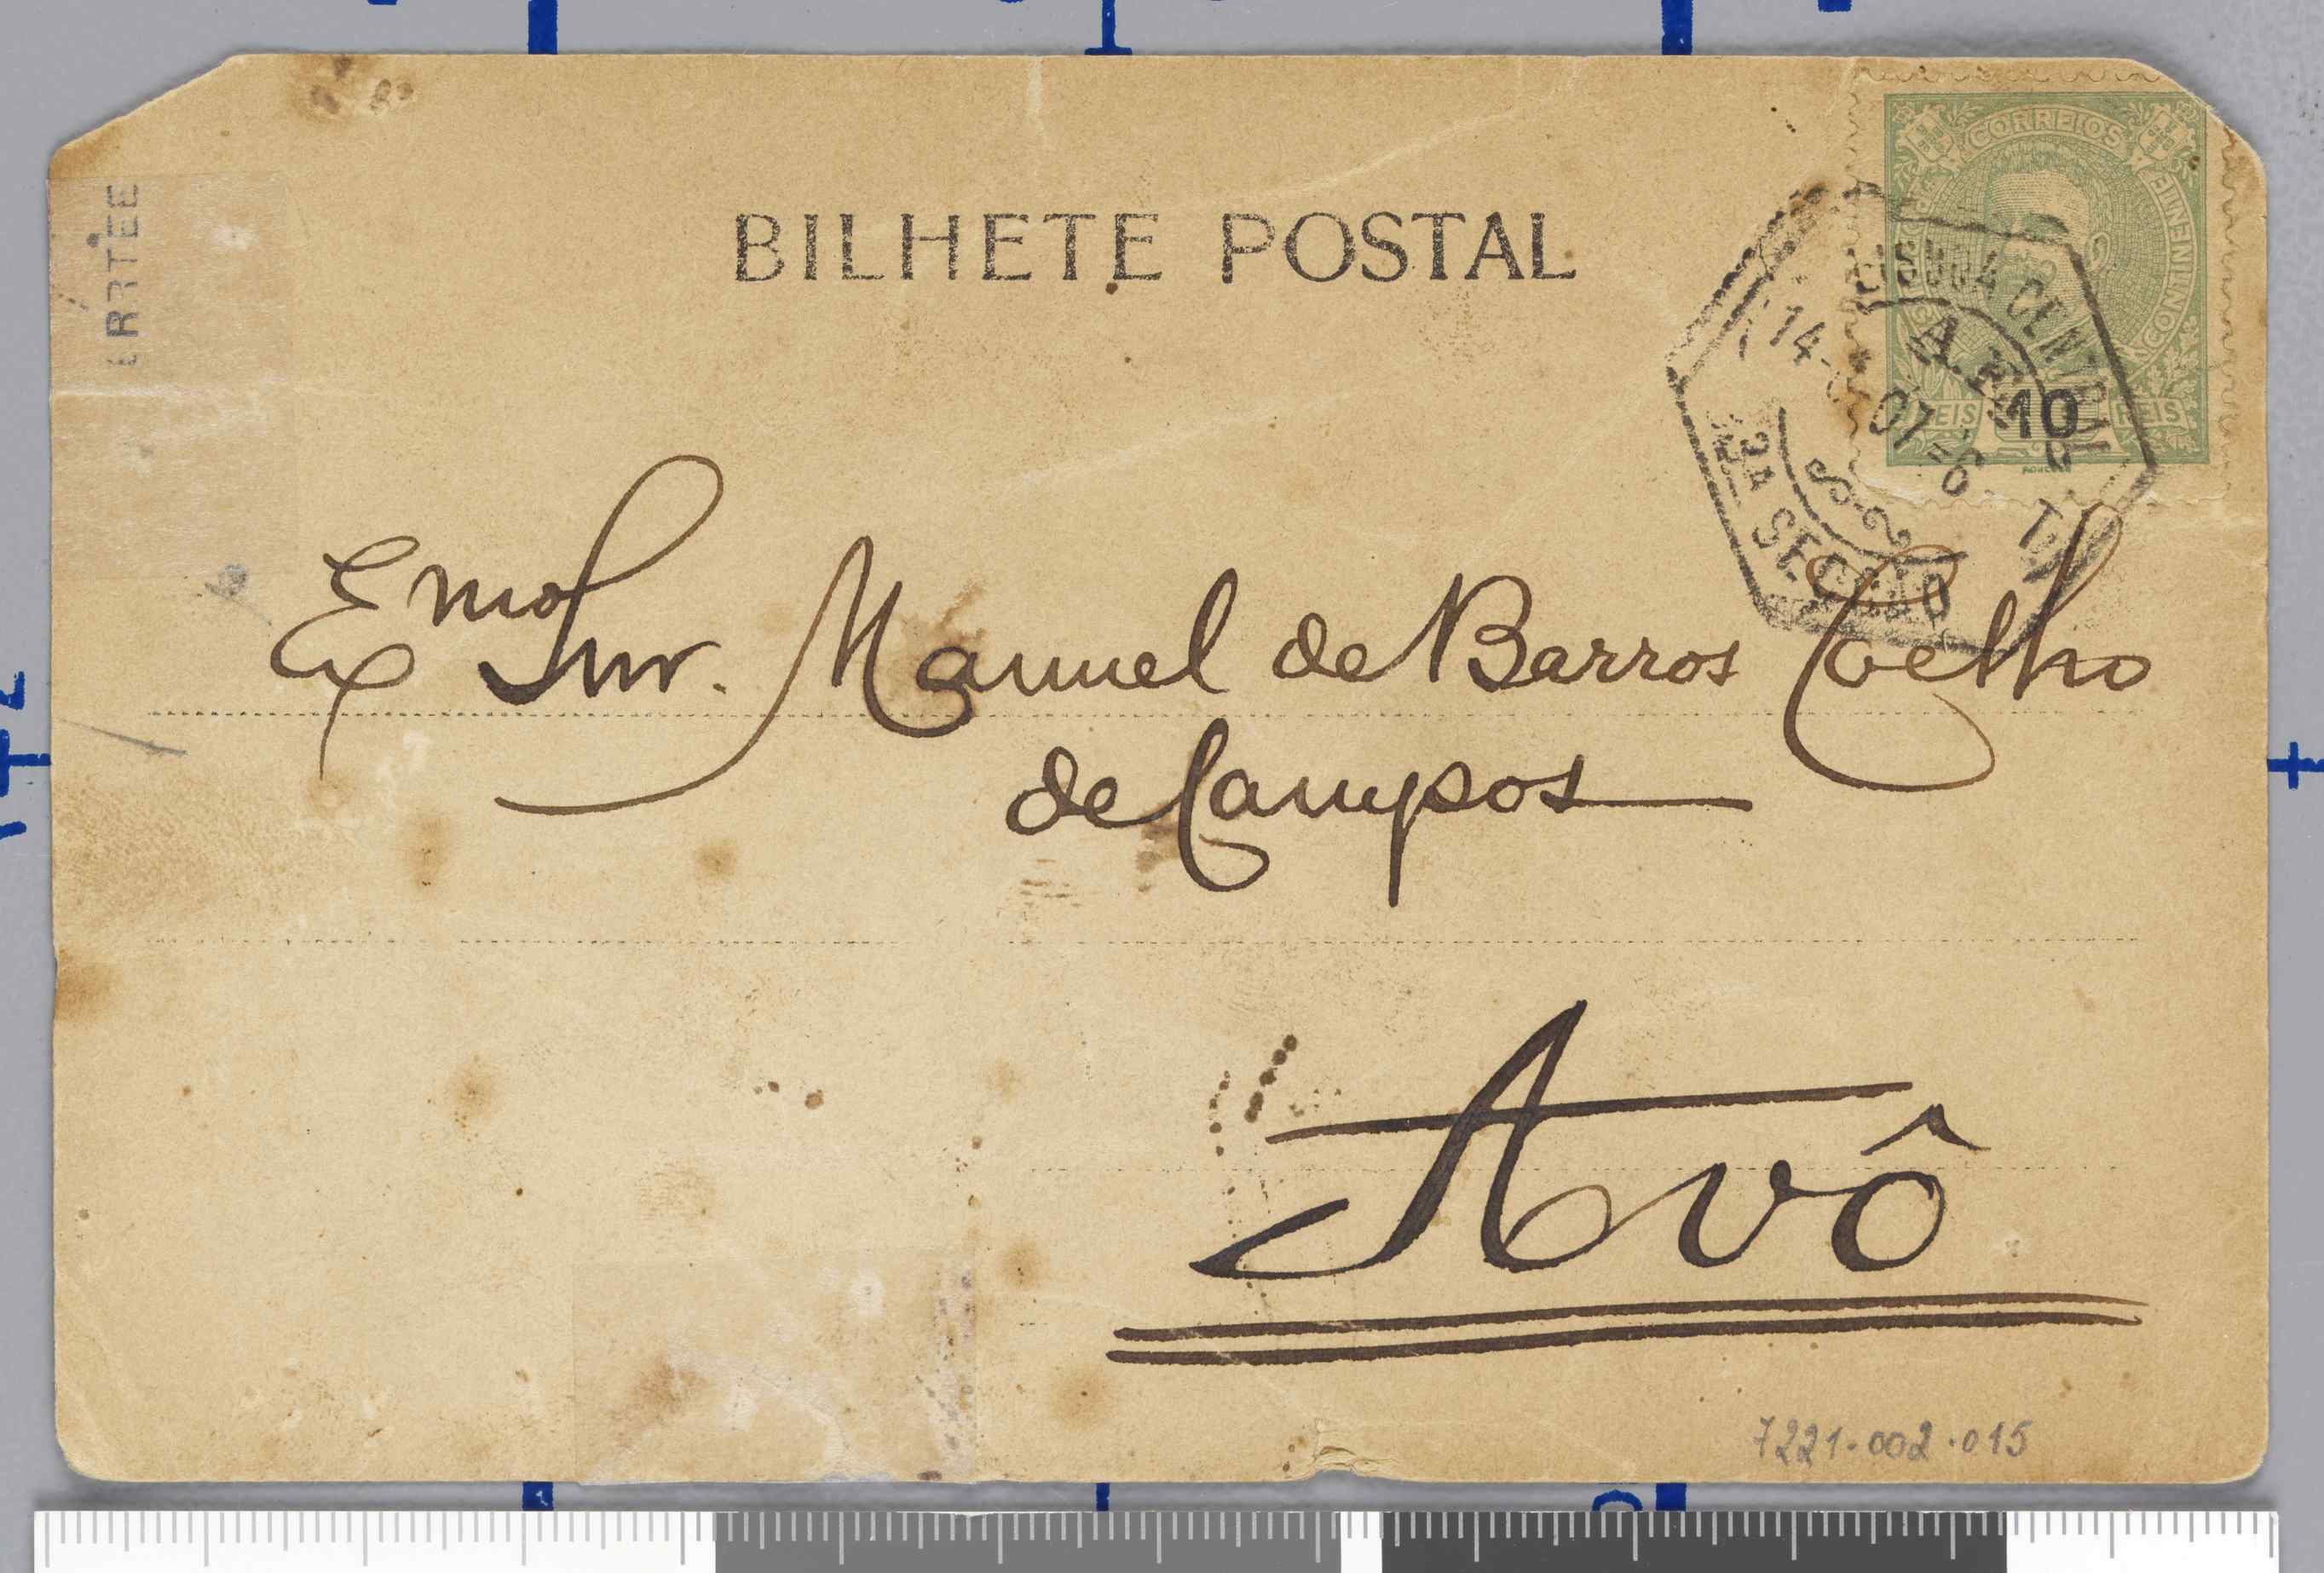 BILHETE POSTAL
CORREIOS
CONTINENTE
10
REIS REIS
CENTRAL
14
07
3ª SECÇÃO
Exmo Snr. Manuel de Barros Coelho
de Campos
Avô
7221.002.015